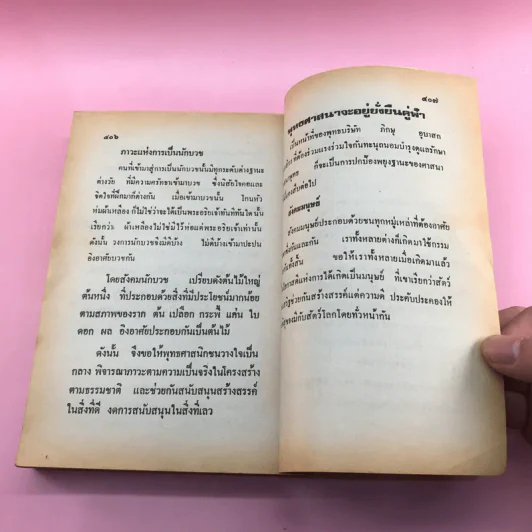 ๔๐๖
ภาวะแห่งการเป็นนักบวช
คนที่เข้ามาสู่การเป็นนักบวชนั้นมีทุกระดับต่างฐานะ
ต่างวัย ที่มีความศรัทธาเข้ามาบวช ซึ่งนิสัยใจคอและ
จิตใจที่ฝึกมาก็ต่างกัน เมื่อเข้ามาบวชนั้น โกนหัว
ห่มผ้าเหลือง ก็ไม่ใช่ว่าจะได้เป็นพระอริยเจ้าทันทีทันใดนั้น
เรียกว่า ผ้าเหลืองไม่ใช่มีไว้ห่อแต่พระอริยเจ้าเท่านั้น
ดังนั้น วงการนักบวชจึงมีดีบ้าง ไม่ดีบ้างเข้ามาปะปน
อิงอาศัยบวชกัน
โดยสังคมนักบวช เปรียบดังต้นไม้ใหญ่
ต้นหนึ่ง ที่ประกอบด้วยสิ่งที่มีประโยชน์มากน้อย
ตามสภาพของราก ต้น เปลือก กระพี้ แก่น ใบ
ดอก ผล อิงอาศัยประกอบกันเป็นต้นไม้
ดังนั้น จึงขอให้พุทธศาสนิกชนวางใจเป็น
กลาง พิจารณาภาวะตามความเป็นจริงในโครงสร้าง
ตามธรรมชาติ และช่วยกันสนับสนุนสร้างสรรค์
ในสิ่งที่ดี งดการสนับสนุนในสิ่งที่เลว
๔๐๗
พุทธศาสนาจะอยู่ยั่งยืนคู่ฟ้า
เป็นหน้าที่ของพุทธบริษัท ภิกษุ อุบาสก
ที่ต้องร่วมแรงร่วมใจกันทะนุถนอมบำรุงดูแลรักษา
ก็จะเป็นการปกป้องพยุงฐานะของศาสนา
ต่อไป
สังคมมนุษย์
สังคมมนุษย์ประกอบด้วยชนทุกหมู่เหล่าที่ต้องอาศัย
ซึ่งกันและกัน เราทั้งหลายต่างก็เกิดมาใช้กรรม
ทั้งสิ้น ขอให้เราทั้งหลายเมื่อเกิดมาแล้ว
แห่งการได้เกิดเป็นมนุษย์ ที่เขาเรียกว่าสัตว์
ช่วยกันสร้างสรรค์แต่ความดี ประคับประคองให้
กับสัตว์โลกโดยทั่วหน้ากัน